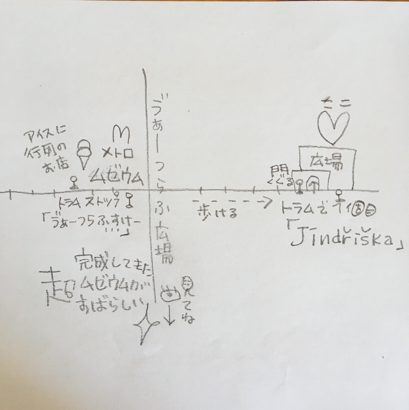 アイスに
行列の
お店
M
メトロ
ムゼウム
トラムストップ
「ヴぁーつらふすけー
!!!」
ヴぁーつらふ広場
歩ける
ここ
広場
門
くぐる
トラムで
「Jindřiška」
超
完成してきた
ムゼウムが
すばらしい
見てね